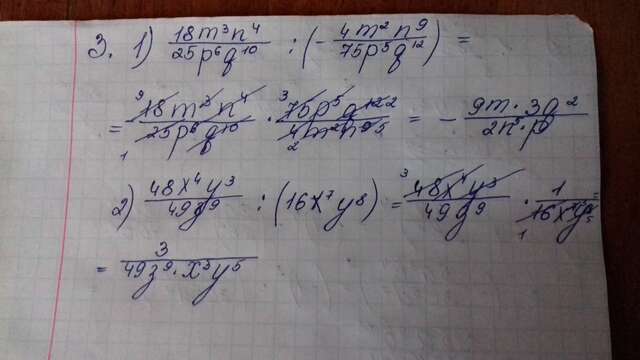 3. 1) 18m³n⁴/25p⁶q¹⁰ : (- 4m²n⁹/75p⁵q¹²) =
= 18m³n⁴/25p⁶q¹⁰ · = - 9m·3q²/2n⁵·p
2) 48x⁴y³/49q⁹ : (16x⁷y⁸) = 48x⁴y³/49q⁹ · 1/16x⁷y⁸
= 3/49q⁹·x³y⁵